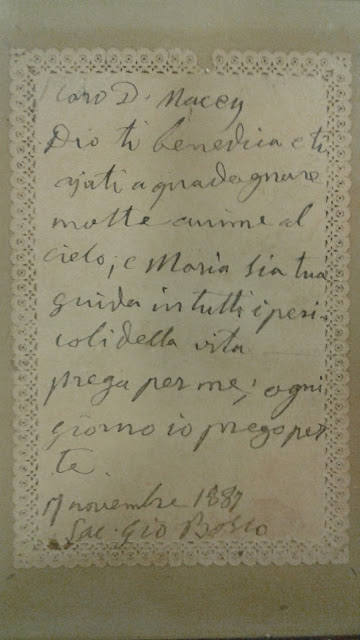 Caro D. Macey
Dio ti benedica e ti
ajuti a guadagnare
molte anime al
cielo; e Maria sia tua
guida in tutti i peri-
coli della vita
prega per me; ogni
giorno io prego per
te.
17 novembre 1887
Sac. Gio Bosco